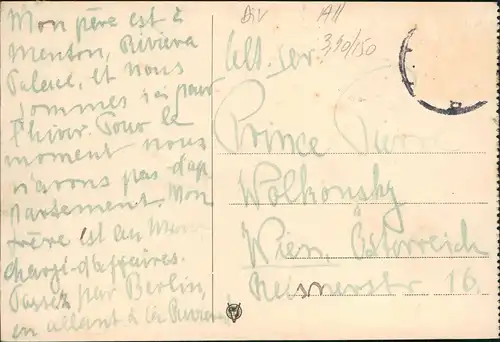 Mon père est à
Menton, Riviera
Palace, et nous
sommes ici pour
l'hiver. Pour le
moment nous
n'avons pas d'ap
partement. Mon
frère est au
chargé-d'affaires.
Passez par Berlin,
en allant à la Riviera
390/150
Prince
Wolkonsky
à
Wien, Österreich
Reisnerstr 16.